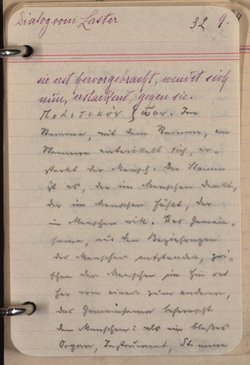 Dialog vom Laster
32 9.
sie erst hervorgebracht, wendet sich
nun, erstarkend, gegen sie.
Im
Stammen, mit dem Stamme, am
Stamme entwickelt sich, er-
starkt der Mensch. Der Stamm
ist es, der im Menschen denkt,
der im Menschen fühlt, der
im Menschen will. Das Gemein-
same, aus den Beziehungen
der Menschen entstanden, zwi-
schen den Menschen hin und
her von einem zum anderen,
das Gemeinsame beherrscht
den Menschen: als ein bloßes
Organ, Instrument,